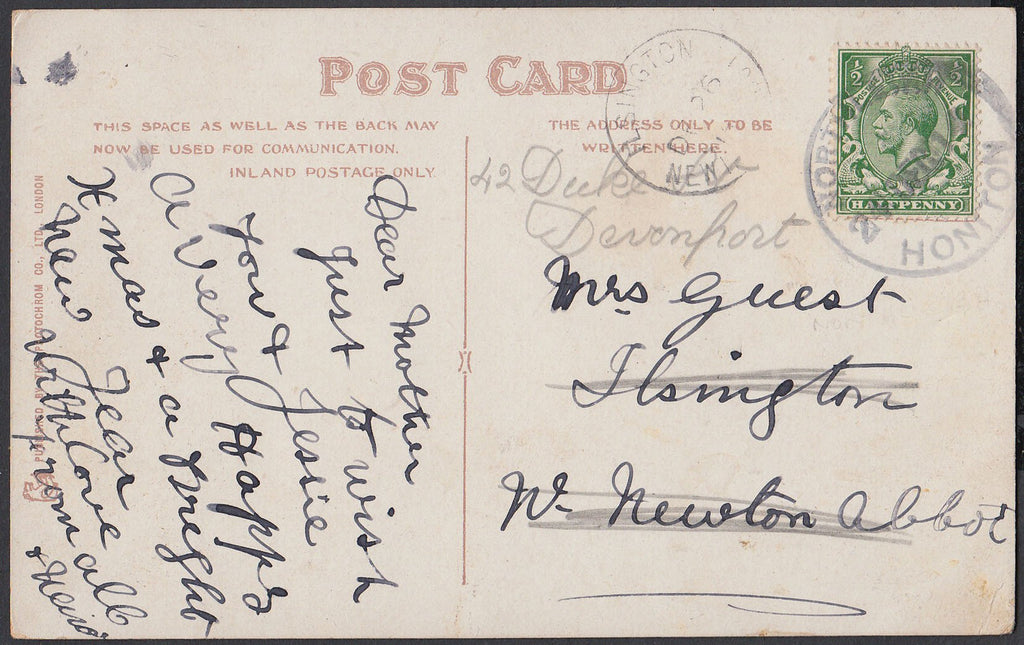 POST CARD
THIS SPACE AS WELL AS THE BACK MAY
NOW BE USED FOR COMMUNICATION.
INLAND POSTAGE ONLY.
THE ADDRESS ONLY TO BE
WRITTEN HERE.
Dear Mother
Just to wish
you & Jessie
a very Happy
Xmas & a Bright
New Year
With love
from all
42 Duke
Devonport
Mrs Guest
Ilsington
Nr Newton Abbot
ILSINGTON
26
NEW
½ ½
POSTAGE REVENUE
HALFPENNY
HONITON
LTD., LONDON